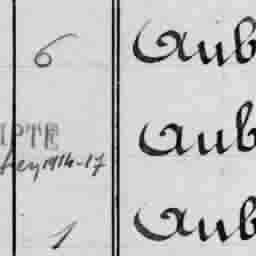 6 Aub
IPTE
1914-17 Aub
1 Aub